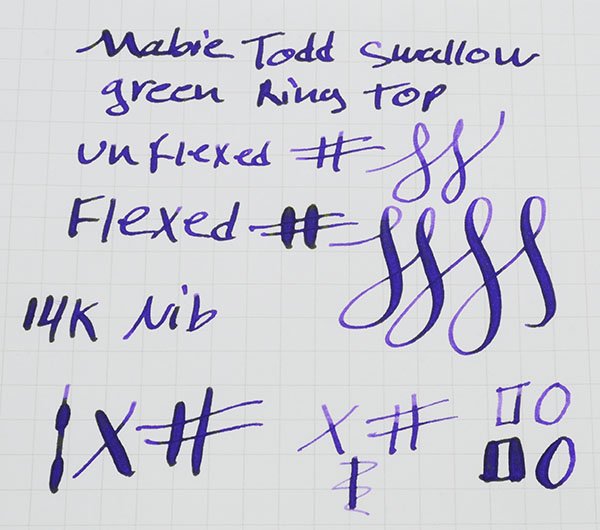 Mabie Todd Swallow
green Ring Top
unflexed # ss
Flexed # ssss
14K Nib
1 X # X # O
O